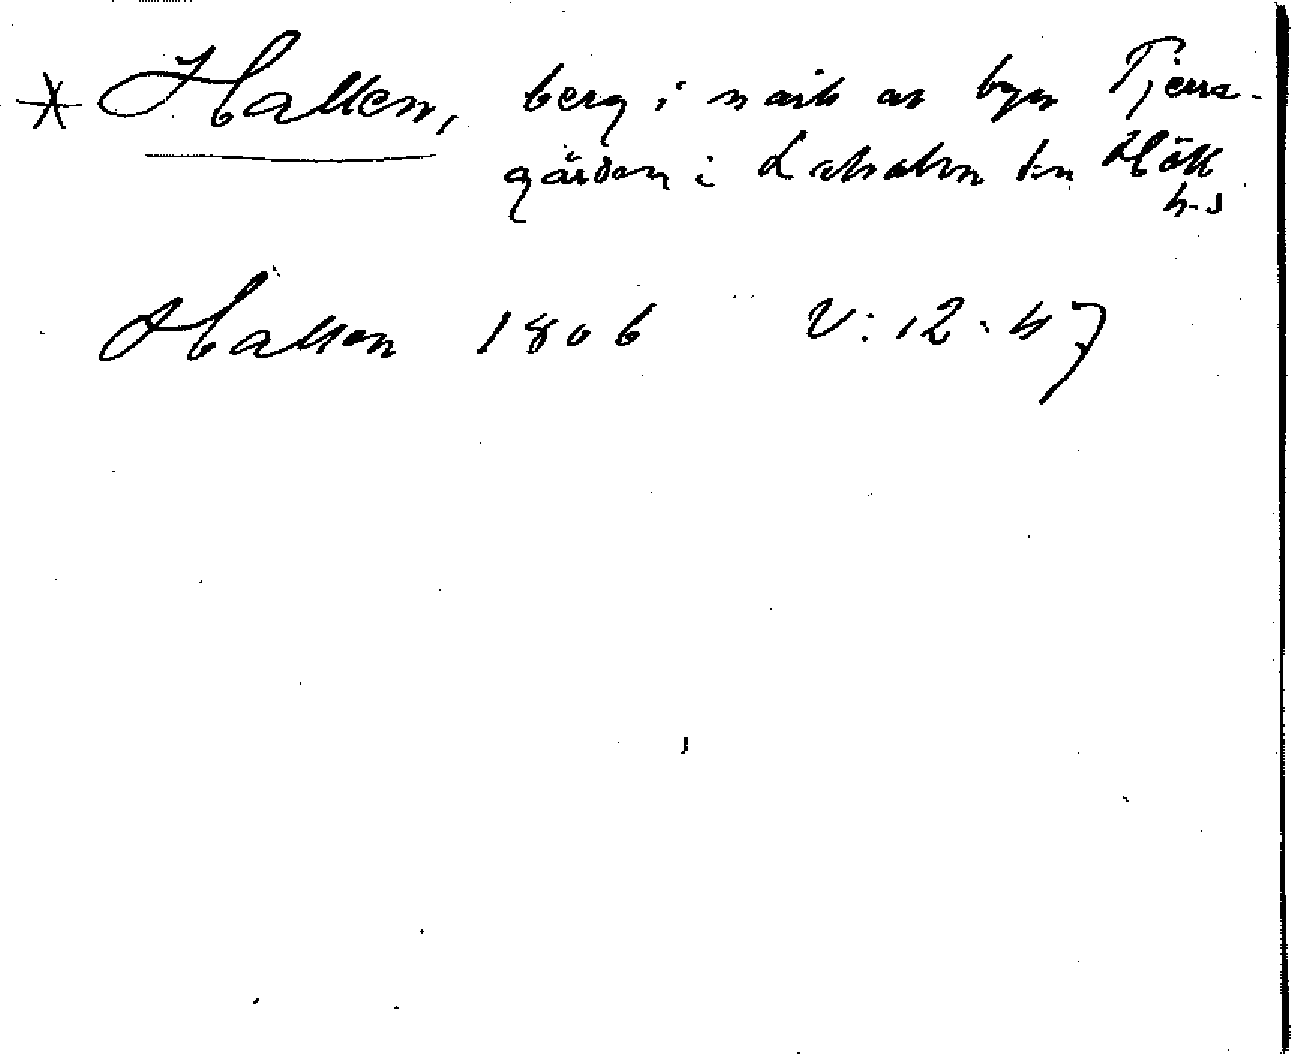 * Hallen, berg i närh av byn Tjera-
gården i Laholm sn Hök
h-d
Hallen 1806 V: 12. 47